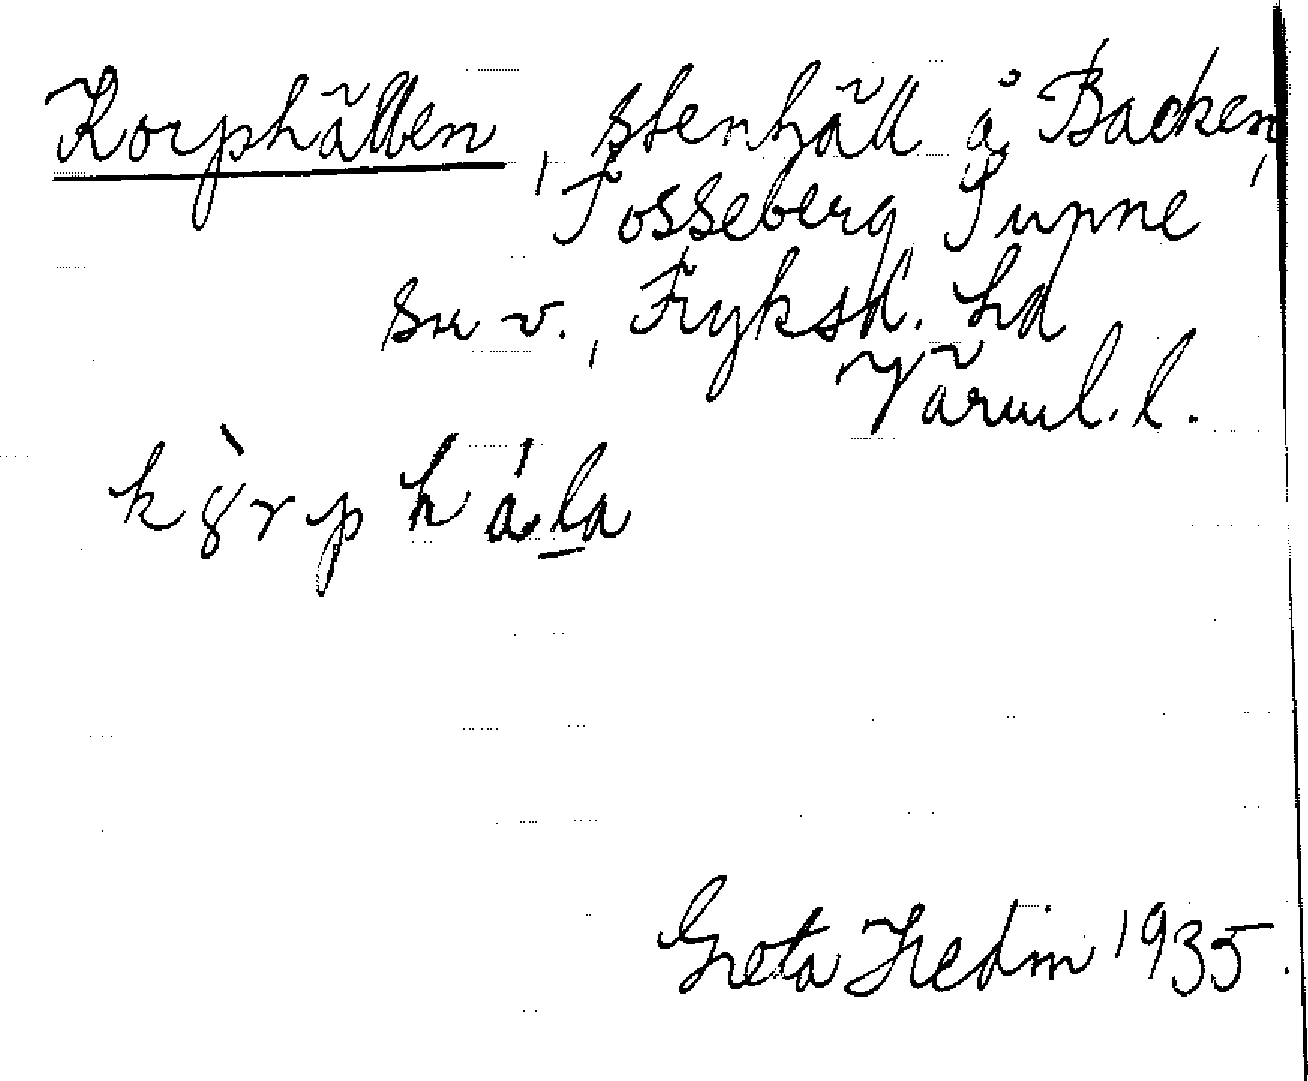 Korphällen, stenhäll å Backen,
Tosseberg Sunne
sn v., Fryksd. hd
Värml. l.
kȣ̀rp há.la
Greta Hedin 1935.